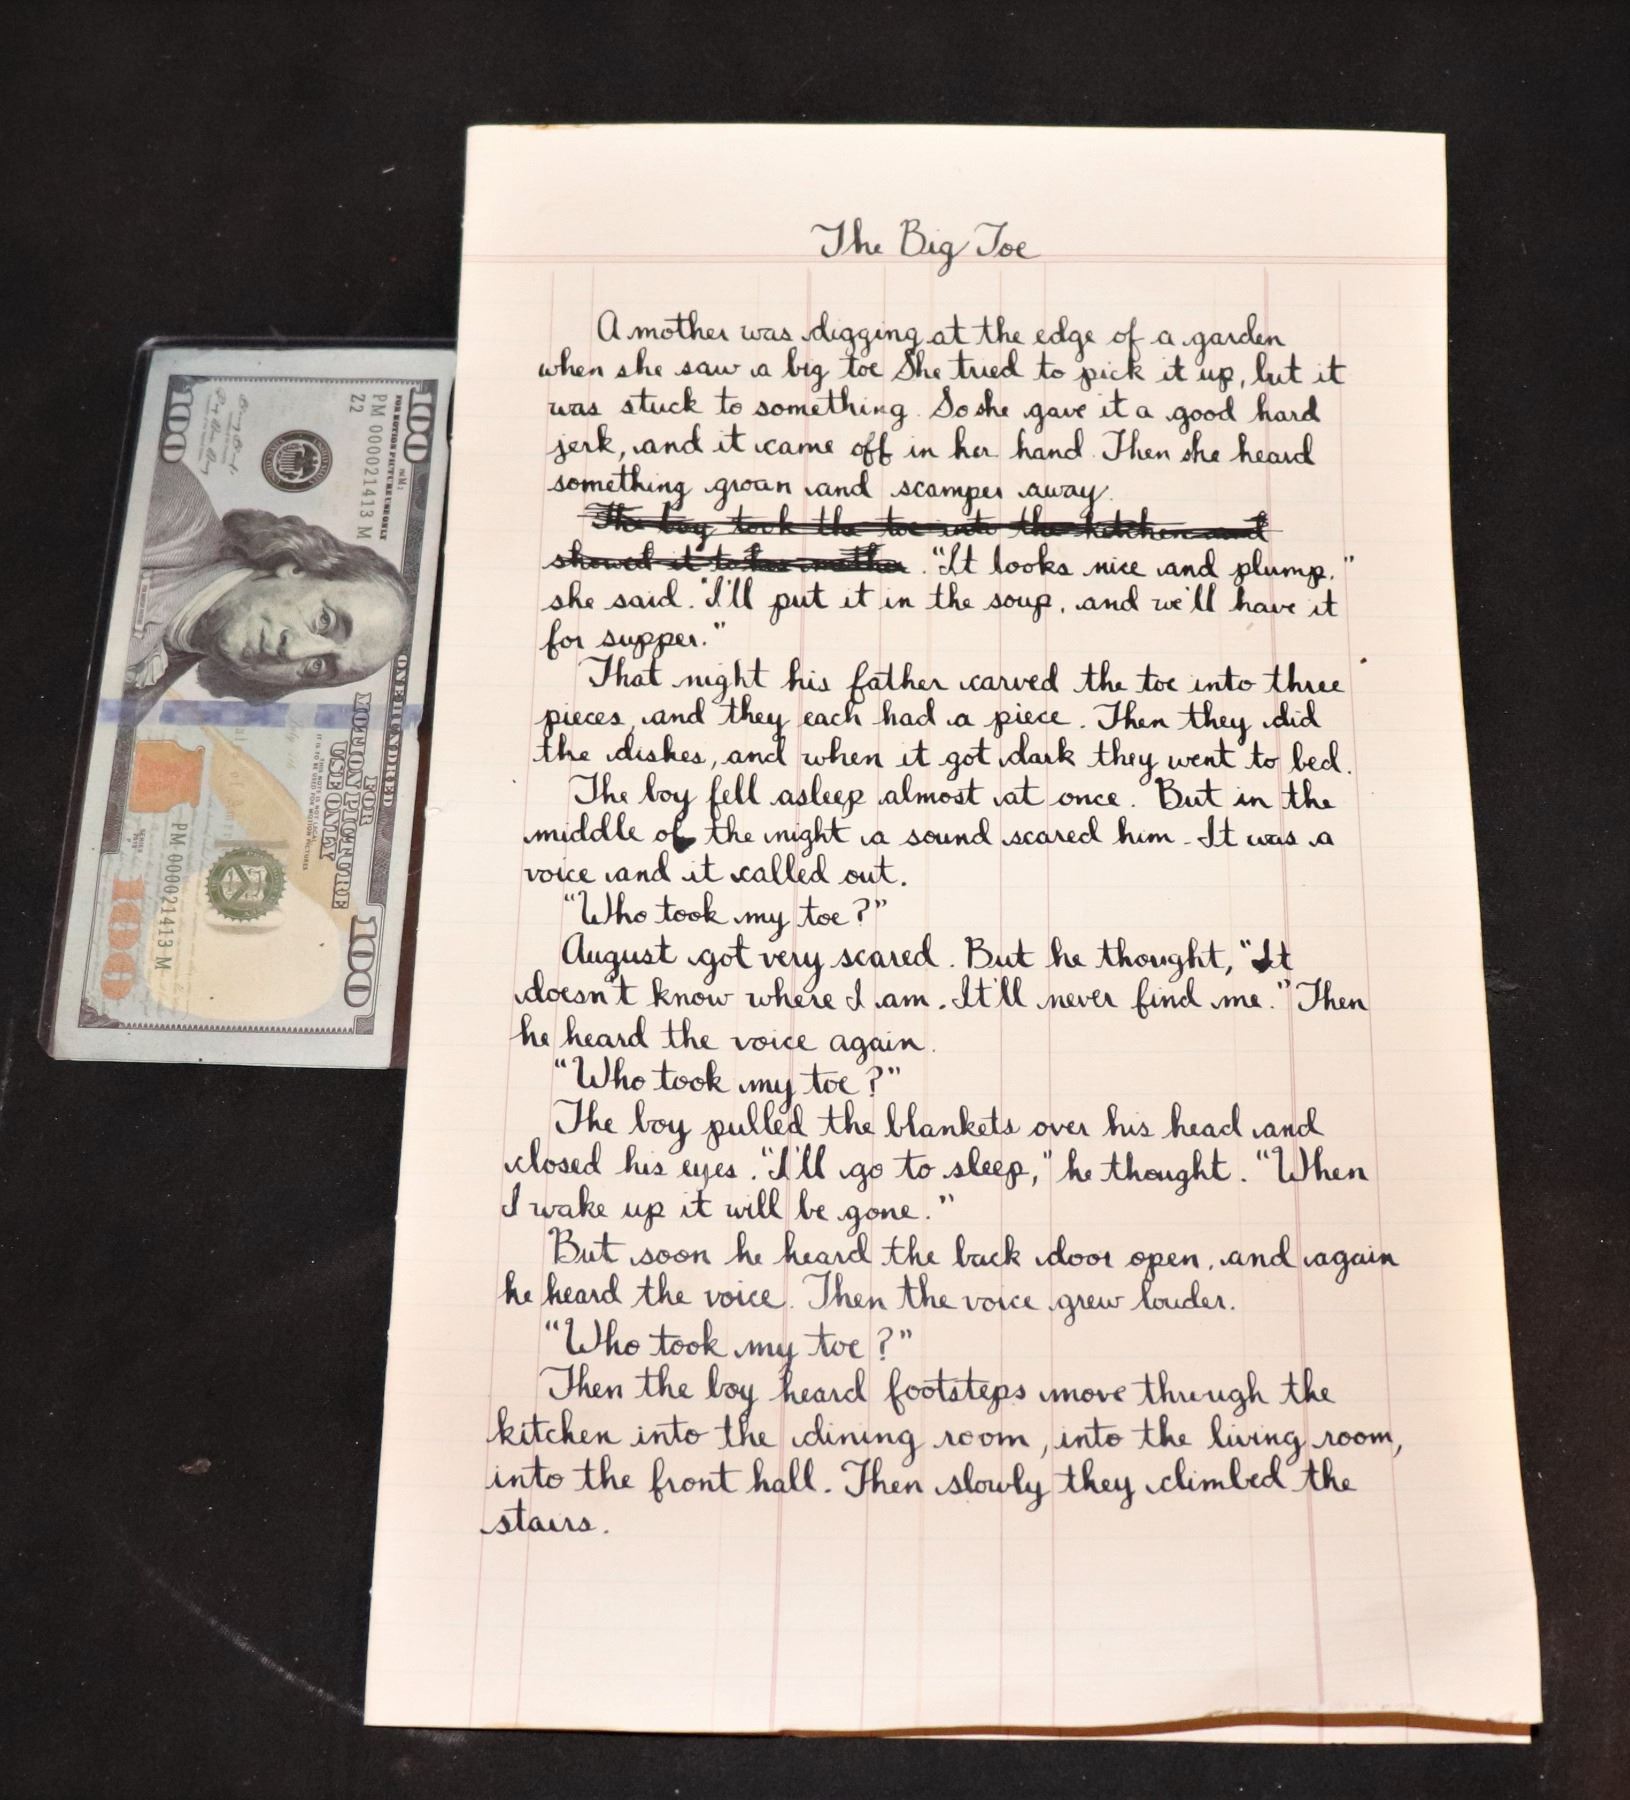 The Big Toe
A mother was digging at the edge of a garden
when she saw a big toe She tried to pick it up, but it
was stuck to something. So she gave it a good hard
jerk, and it came off in her hand. Then she heard
something groan and scamper away.
The boy took the toe into the kitchen and
showed it to his mother. "It looks nice and plump,"
she said. "I'll put it in the soup, and we'll have it
for supper."
That night his father carved the toe into three
pieces, and they each had a piece. Then they did
the dishes, and when it got dark they went to bed.
The boy fell asleep almost at once. But in the
middle of the night a sound scared him. It was a
voice and it called out.
"Who took my toe?"
August got very scared. But he thought, "It
doesn't know where I am. It'll never find me." Then
he heard the voice again.
"Who took my toe?"
The boy pulled the blankets over his head and
closed his eyes. "I'll go to sleep," he thought. "When
I wake up it will be gone."
But soon he heard the back door open, and again
he heard the voice. Then the voice grew louder.
"Who took my toe?"
Then the boy heard footsteps move through the
kitchen into the dining room, into the living room,
into the front hall. Then slowly they climbed the
stairs.
100
100
FOR MOTION PICTURE USE ONLY
PM 000021413 M
Z2
ONE HUNDRED
FOR
MOTION PICTURE
USE ONLY
PM 000021413 M
100
100